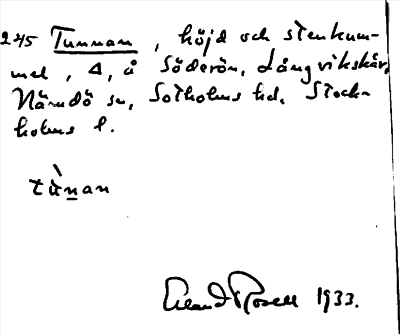 245 Tunnan, höjd och stenkum-
mel, Δ, å Söderön, Långvikskär,
Nämdö sn, Sotholms hd, Stock-
holms l.
tu̇̀nan
Erland Rosell 1933.